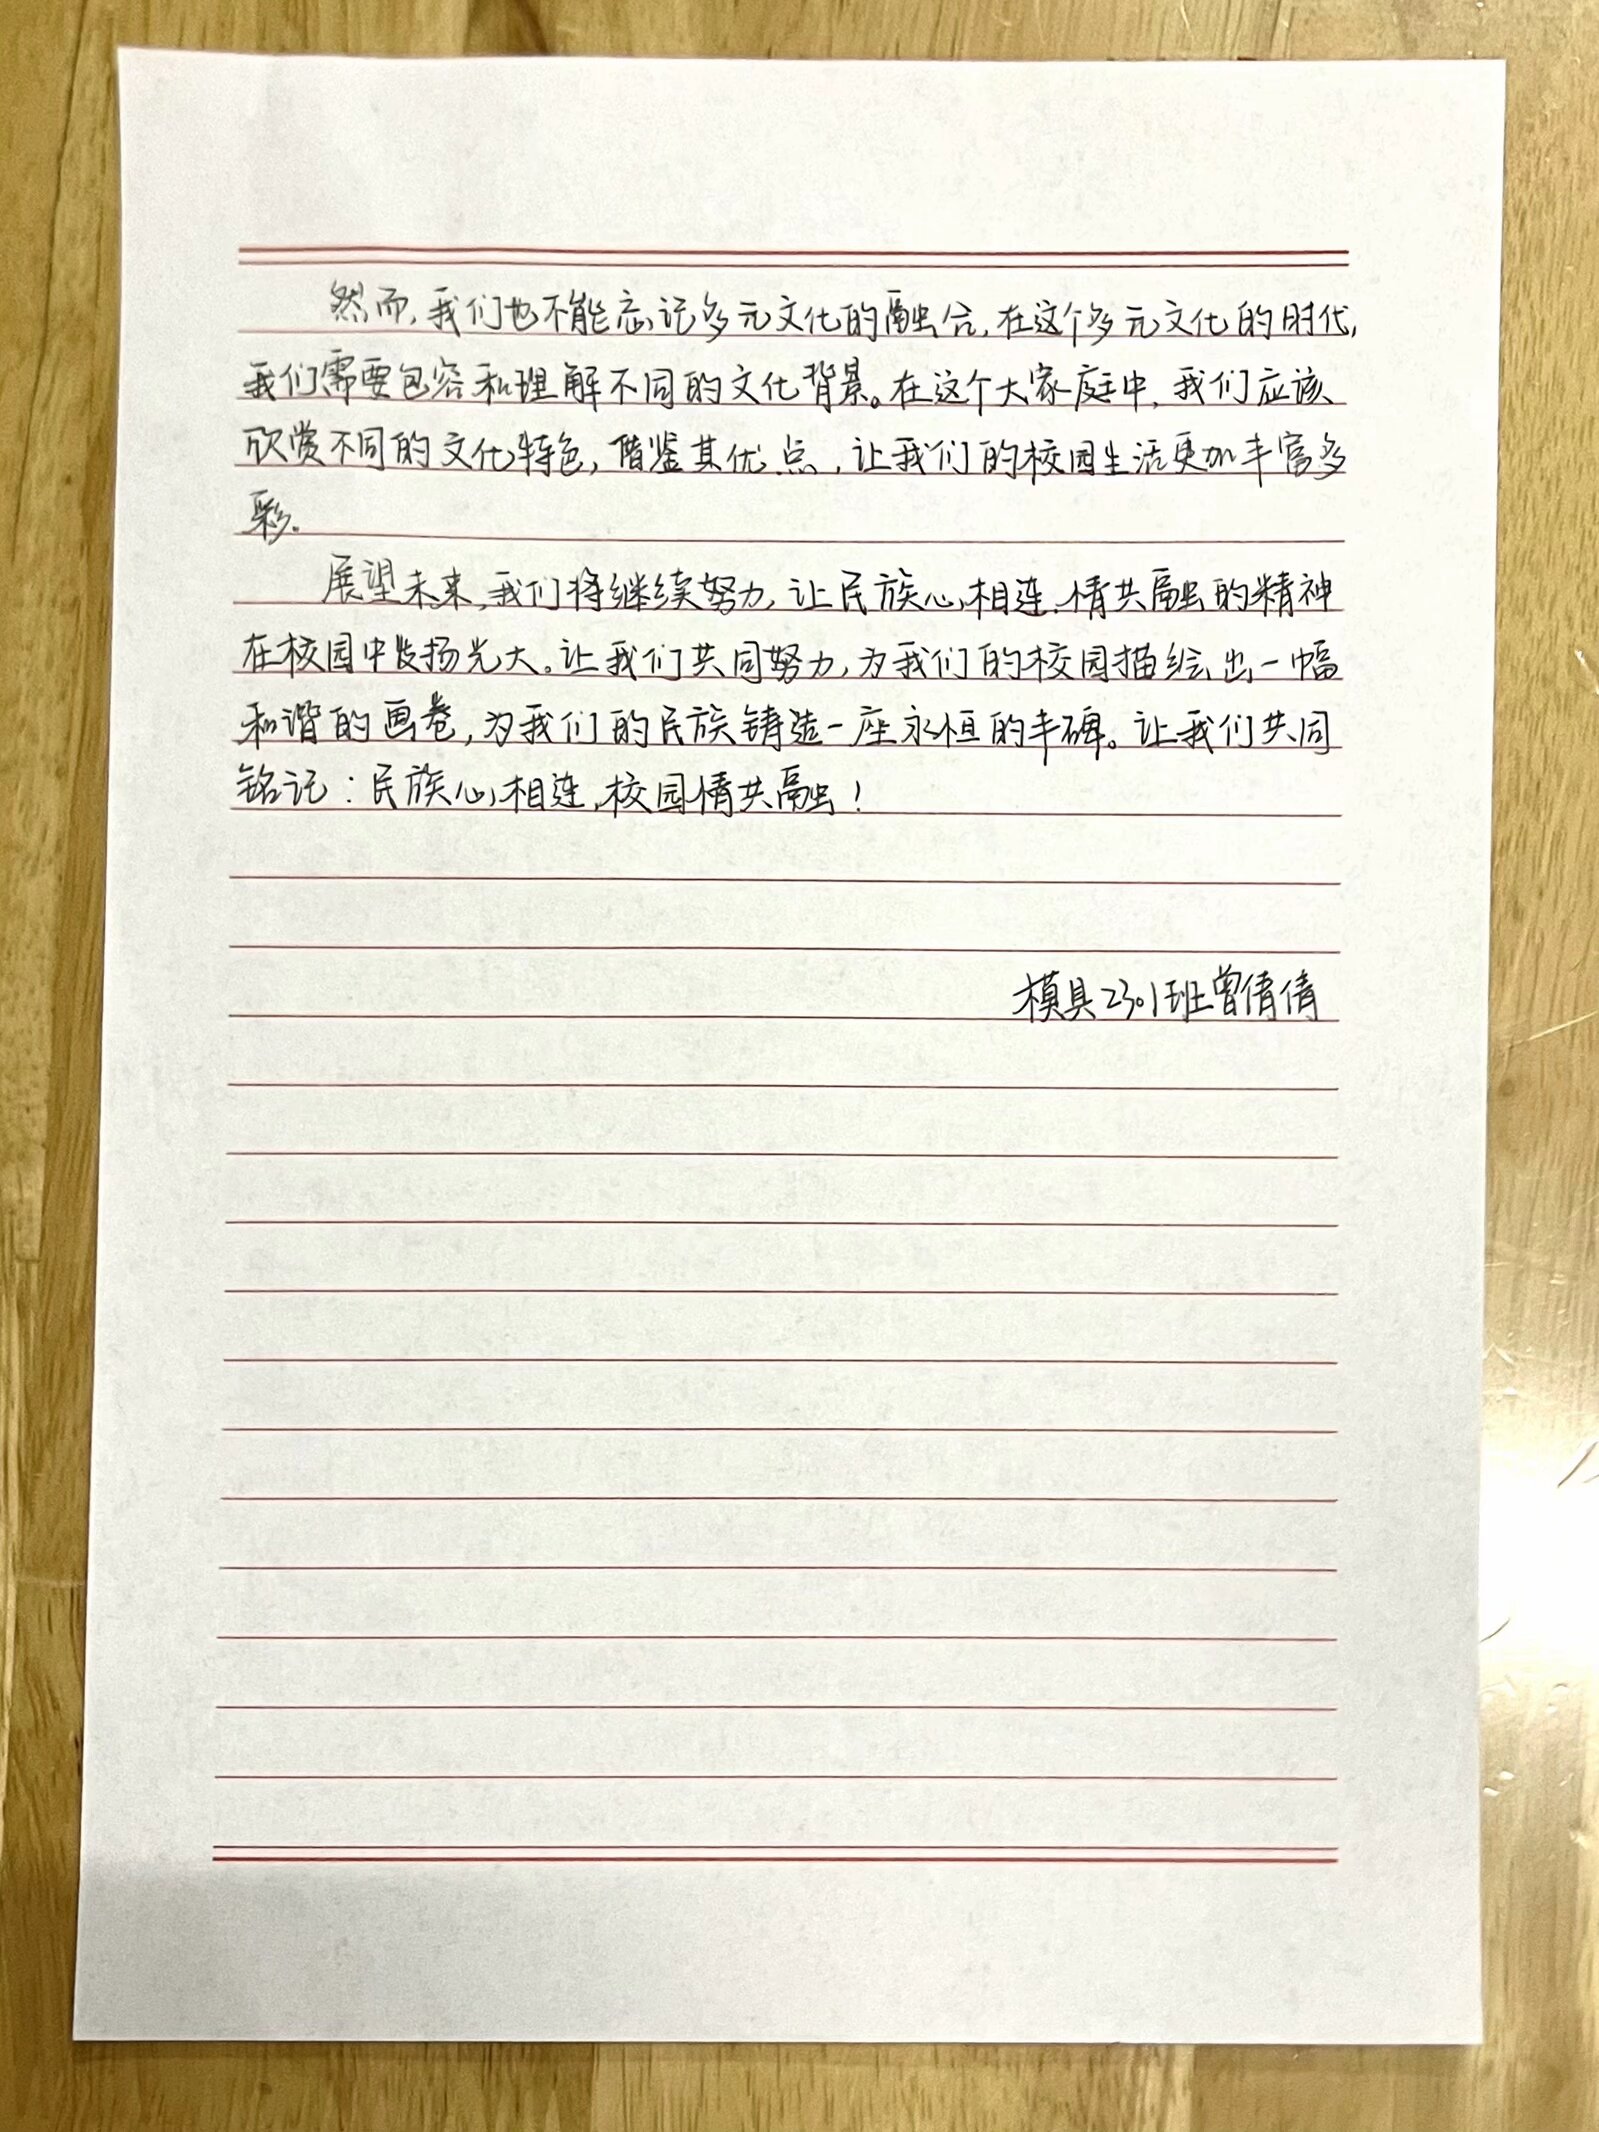 然而,我们也不能忘记多元文化的融合,在这个多元文化的时代,
我们需要包容和理解不同的文化背景。在这个大家庭中,我们应该
欣赏不同的文化特色,借鉴其优点,让我们的校园生活更加丰富多
彩。
展望未来,我们将继续努力,让民族心相连,情共融的精神
在校园中发扬光大。让我们共同努力,为我们的校园描绘出一幅
和谐的画卷,为我们的民族铸造一座永恒的丰碑。让我们共同
铭记:民族心相连,校园情共融!
模具2301班曾倩倩